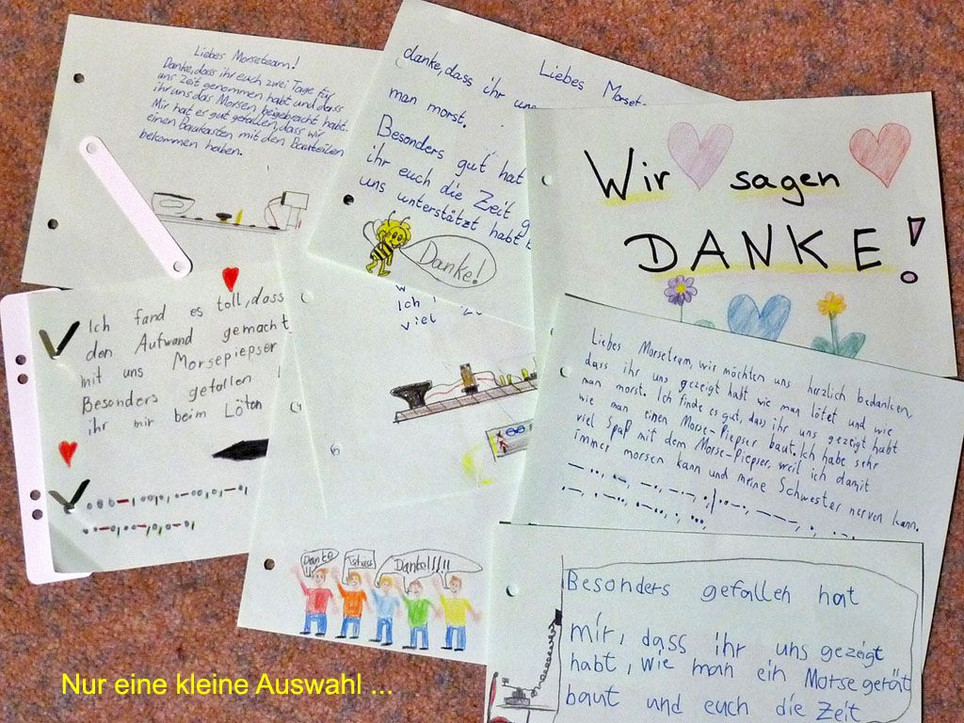 Liebes Morseteam!
Danke, dass ihr euch zwei Tage für
uns Zeit genommen habt und dass
ihr uns das Morsen beigebracht habt.
Mir hat es gut gefallen, dass wir
einen Baukasten mit den Bauteilen
bekommen haben.
Liebes Morset
danke, dass ihr uns
man morst.
Besonders gut hat
ihr euch die Zeit g
uns unterstützt habt
Danke!
Wir sagen
DANKE!
Ich fand es toll, dass
den Aufwand gemacht
mit uns Morsepiepser
Besonders gefallen
ihr mir beim Löten
Ich
viel
Liebes Morseteam, wir möchten uns herzlich bedanken,
dass ihr uns gezeigt habt wie man lötet und wie
man morst. Ich finde es gut, dass ihr uns gezeigt habt
wie man einen Morse-Piepser baut. Ich habe sehr
viel Spaß mit dem Morse-Piepser, weil ich damit
immer morsen kann und meine Schwester nerven kann.
Danke
!!
Tschüss
Danke!!!!
Besonders gefallen hat
mir, dass ihr uns gezeigt
habt, wie man ein Morsegerät
baut und euch die Zeit
Nur eine kleine Auswahl ...